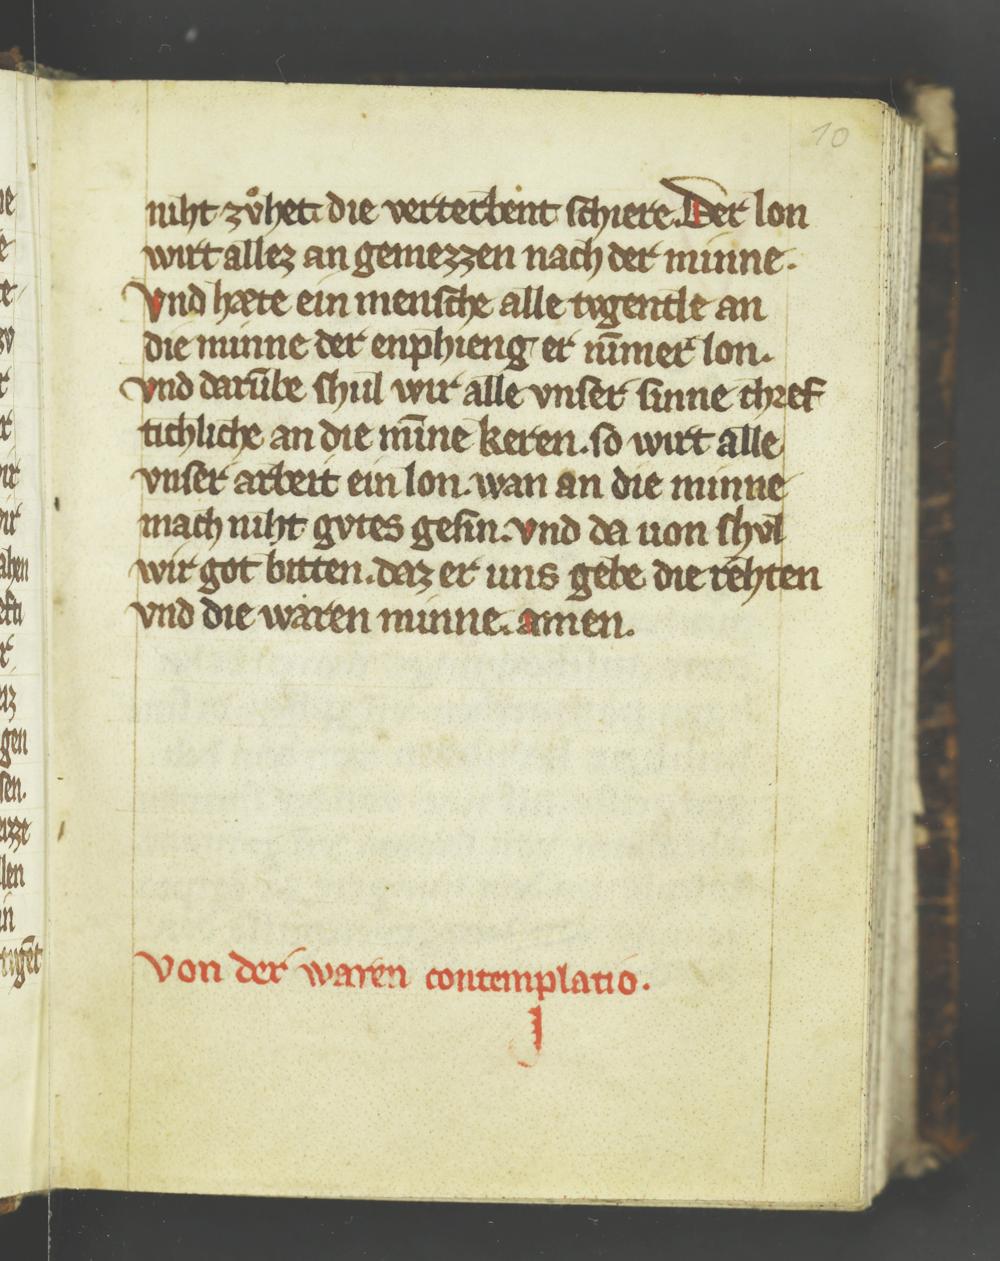 10
niht zvͦhet die verterbent schiere. Der lon
wirt allez an gemezzen nach der minne.
Vnd hæte ein mensche alle tvgentle an
die minne der enphieng er nim̄er lon.
vnd darūbe shul wir alle vnser sinne chref
tichliche an die miñe keren. so wirt alle
vnser arbeit ein lon. wan an die minne
mach niht gvtes gesin. vnd da uon shvl
wir got bitten. daz er uns gebe die rehten
vnd die waren minne. amen.
von der waren contemplatio.